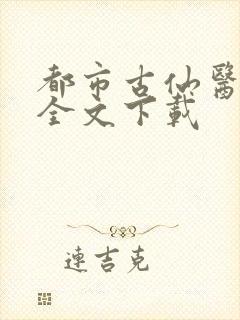 都市古仙醫
全文下載
連吉克